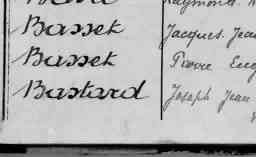 Basset Jacques Jean
Basset Pierre Eug
Bastard Joseph Jean